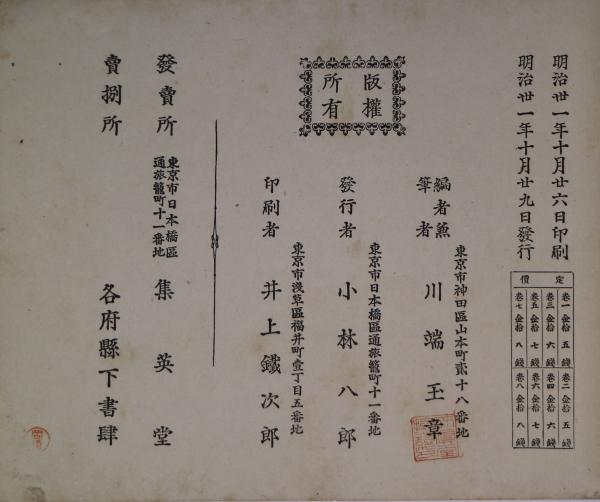 明治丗一年十月廿六日印刷
明治丗一年十月廿九日發行
定價
卷一 金拾五錢
卷二 金拾五錢
卷三 金拾六錢
卷四 金拾六錢
卷五 金拾七錢
卷六 金拾七錢
卷七 金拾八錢
卷八 金拾八錢
版權
所有
東京市神田區山本町貳十八番地
編者兼
筆者
川端玉章
東京市日本橋區通旅籠町十一番地
發行者 小林八郎
東京市淺草區福井町壹丁目五番地
印刷者 井上鐵次郎
發賣所
東京市日本橋區
通旅籠町十一番地
集英堂
賣捌所 各府縣下書肆